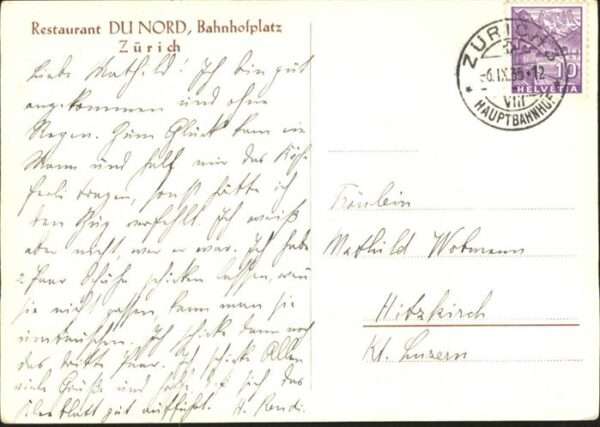 Restaurant DU NORD, Bahnhofplatz
Zürich
Liebe Mathild! Ich bin gut
angekommen und ohne
Regen. Zum Glück kam ein
Mann und half mir das Köf-
ferli tragen, sonst hätte ich
den Zug verfehlt. Ich weiß
aber nicht, wer er war. Ich habe
2 Paar Schuhe schicken lassen, wenn
sie nicht passen, kann man sie
umtauschen. Ich schicke dann noch
das dritte Paar. Ich schicke Allen
viele Grüße und hoffe daß sich das
gut aufführt.
ZÜRICH
-6.IX.35-12
VIII
HAUPTBAHNHOF
10
HELVETIA
Fräulein
Mathild Wobmann
Hitzkirch
Kt. Luzern